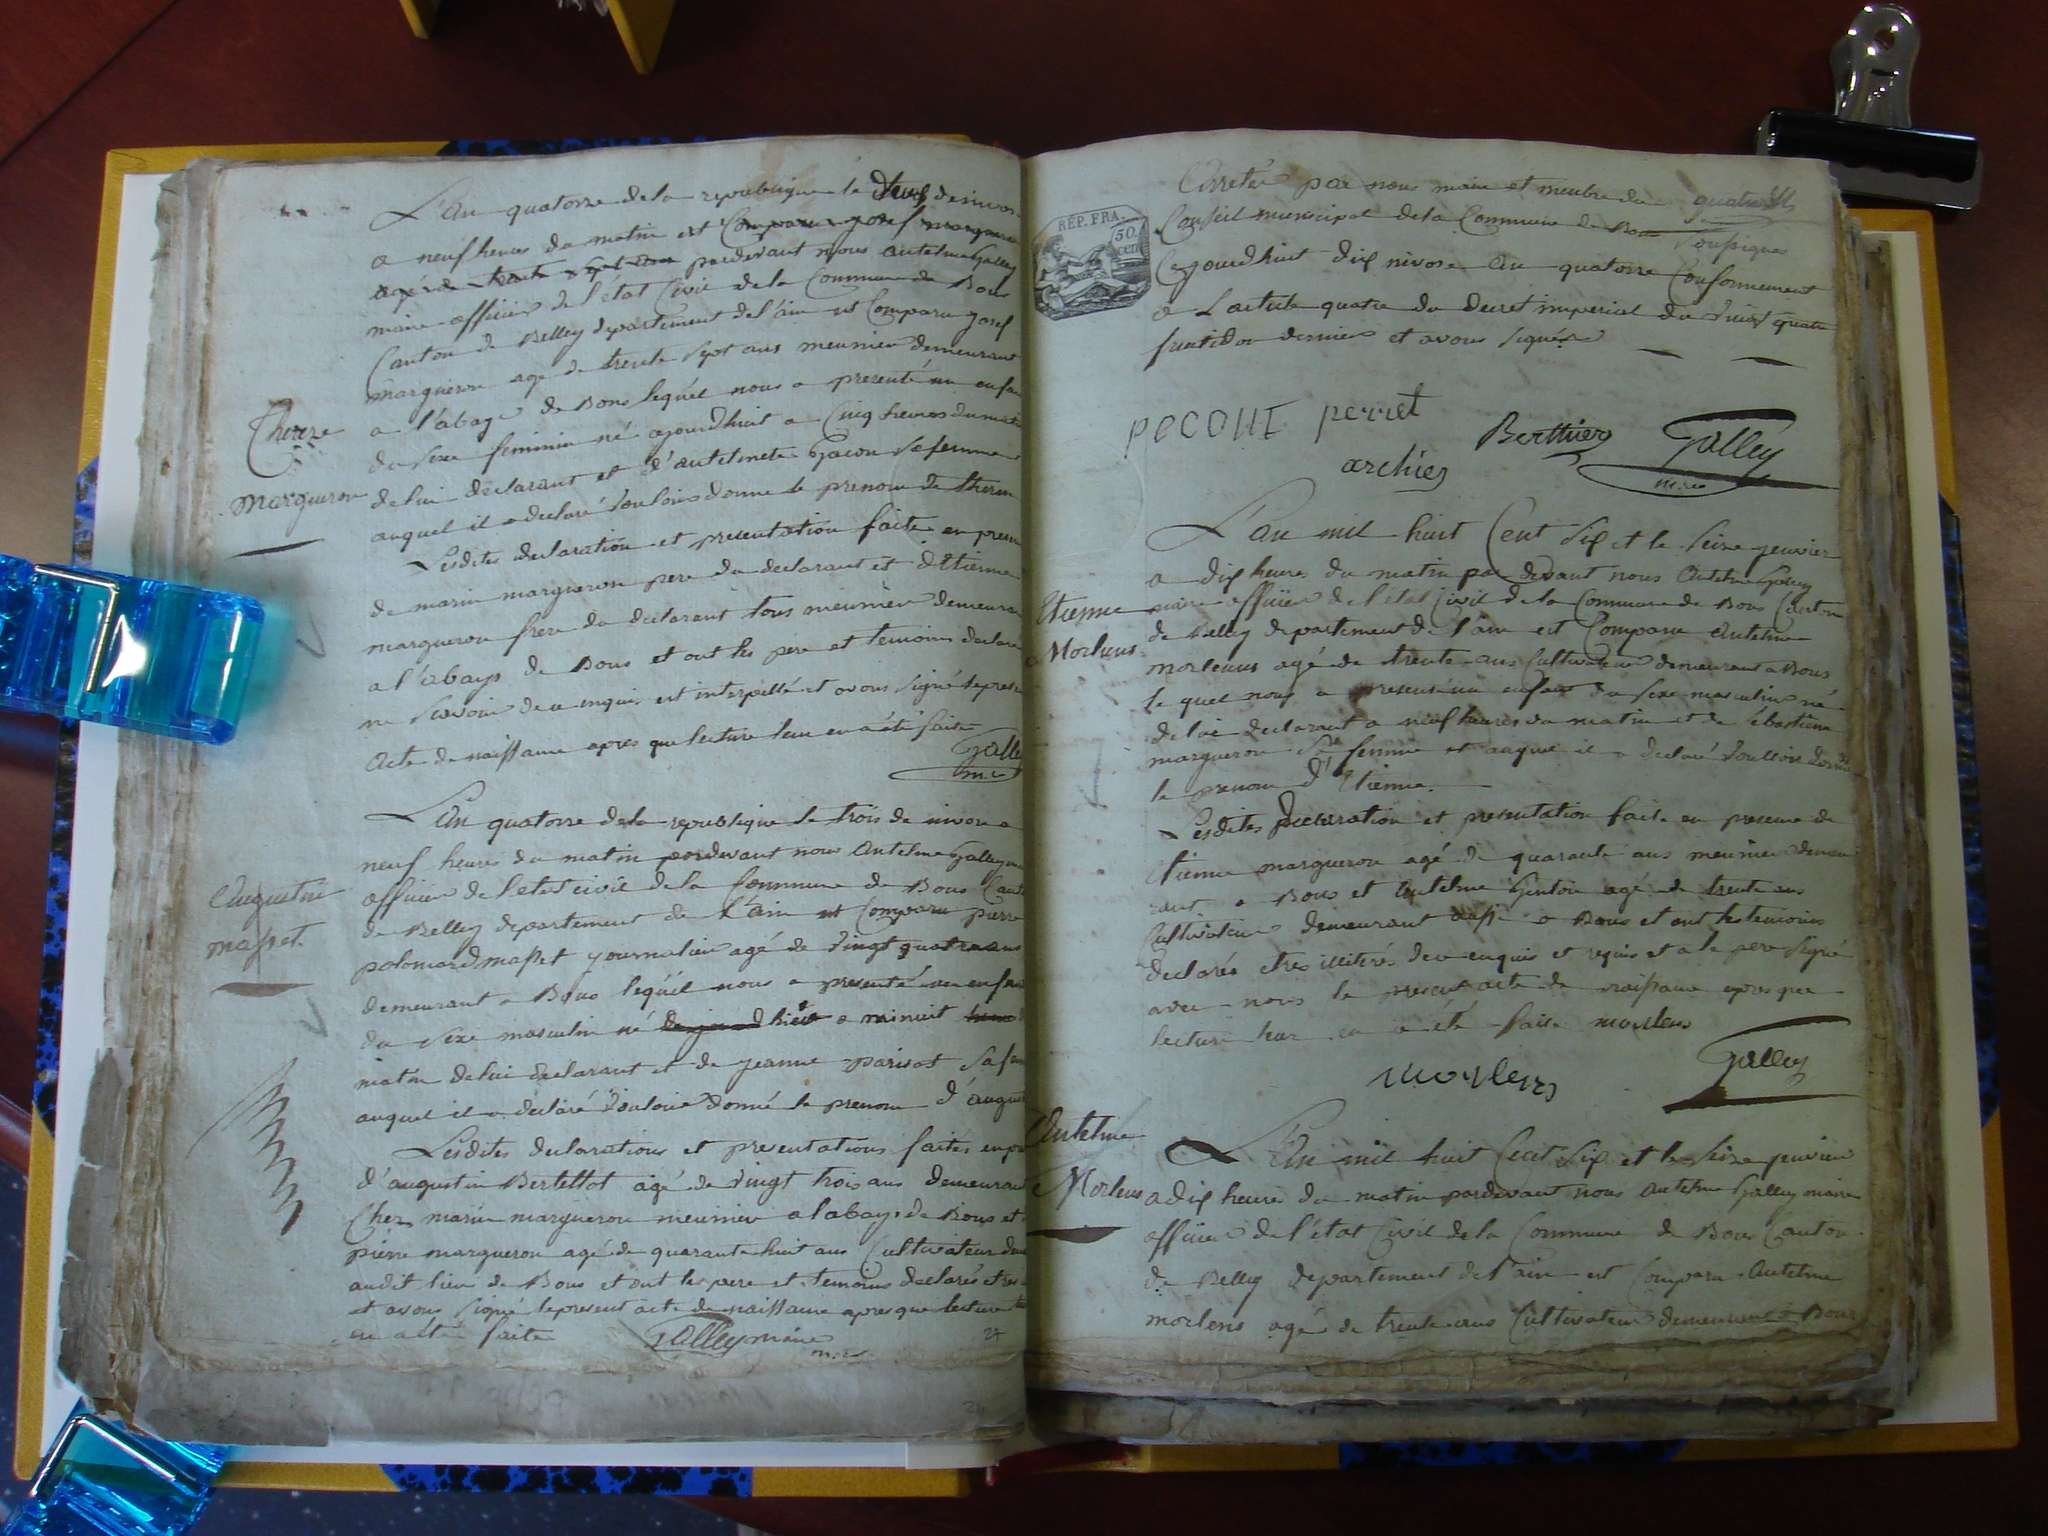 L'an quatorze de la republique le deux de nivose
a neuf heures du matin est Comparu josef margueron
agé de trente sept ans pardevant nous Antelme Galley
maire officier de l'état Civil de la Commune de Bons
Canton de Belley departement de l'ain est Comparu josef
margueron age de trente sept ans meunier demeurant
a l'abaye de Bons lequel nous a presenté un enfan
Thereze
du sexe feminin né ajourd'huit a Cinq heures du matin
margueron
de lui déclarant et d'antelmete Gacon sa femme
auquel il a declaré vouloir donne le prenom de theresse
Lesdites declaration et presentation faite en presen
de marin margueron pere du declarant et d'Etienne
margueron frere du declarant tous meunier demeuran
a l'abaye de Bons et ont les pere et temoins declaré
ne savoir de ce enquis est interpellé et avons signé le present
Acte de naissance apres que lecture leur en a été faite
Galley
m.re
L'an quatorze de la republique le trois de nivose a
neuf heures du matin pardevant nous Antelme Galley m
officier de letat civil de la Commune de Bons Cant
Augustin
de Belley departement de l'ain est Comparu pierre
masset.
polomard masset journalier agé de vingt quatre ans
demeurant a Bons lequel nous a presenté un enfan
du sexe masculin né hier a minuit
matin de lui declarant et de jeanne parisot sa fem
auquel il a déclaré vouloir donné le prenom d'august
Lesdites declarations et presentations faites en pre
d'augustin Bertettot agé de vingt trois ans demeuran
Chez marin margueron meunier a labaye de Bons et
pierre margueron agé de quarante huit ans Cultivateur dem
audit lieu de Bons et ont les pere et temoins declarés etres
et avons signe le present acte de naissance apres que lecture
en a été faite Galley maire
24
Carretée par nous maire et menbre du quatre
Conseil municipal de la Commune de Bons soussigne
Cejourdhuit dix nivose an quatorze Conformement
a L'article quatre du decret imperial du vingt quatre
fructidor dernier et avons signés
REP. FRA.
50
cen
PECOUT perret
Berthier Galley
archier m.re
L'an mil huit Cent six et le seize jenvier
a dix heures du matin par devant nous Antelme Galley
Etienne
maire officier de l'état Civil de la Commune de Bons Canton
de Belley departement de l'ain est Comparu Antelme
Morleins
morleins agé de trente ans Cultivateur demeurant a Bons
le quel nous a presenté un enfant du sexe masculin né
de lui declarant a neuf heures du matin et de Sébastienne
margueron sa femme et auquel il a declaré vouloir donné
le prenom d'Etienne.
Lesdites Declaration et presentation faite en presence de
Etienne margueron agé de quarante ans meunier demeu
rant a Bons et Antelme Genton agé de trente ans
Cultivateur demeurant aussi a Bons et ont les temoins
declarés etres illiterés de ce enquis et requis et a le pere signé
avec nous le present acte de naissance apres que
lecture leur en a été faite morlens
morlens Galley
Antelme
L'an mil huit Cent six et le seize jenvier
Morleins
a dix heures du matin pardevant nous Antelme Galley maire
officier de l'état Civil de la Commune de Bons Canton
de Belley departement de l'ain est Comparu Antelme
morlens agé de trente ans Cultivateur demeurant a Bons